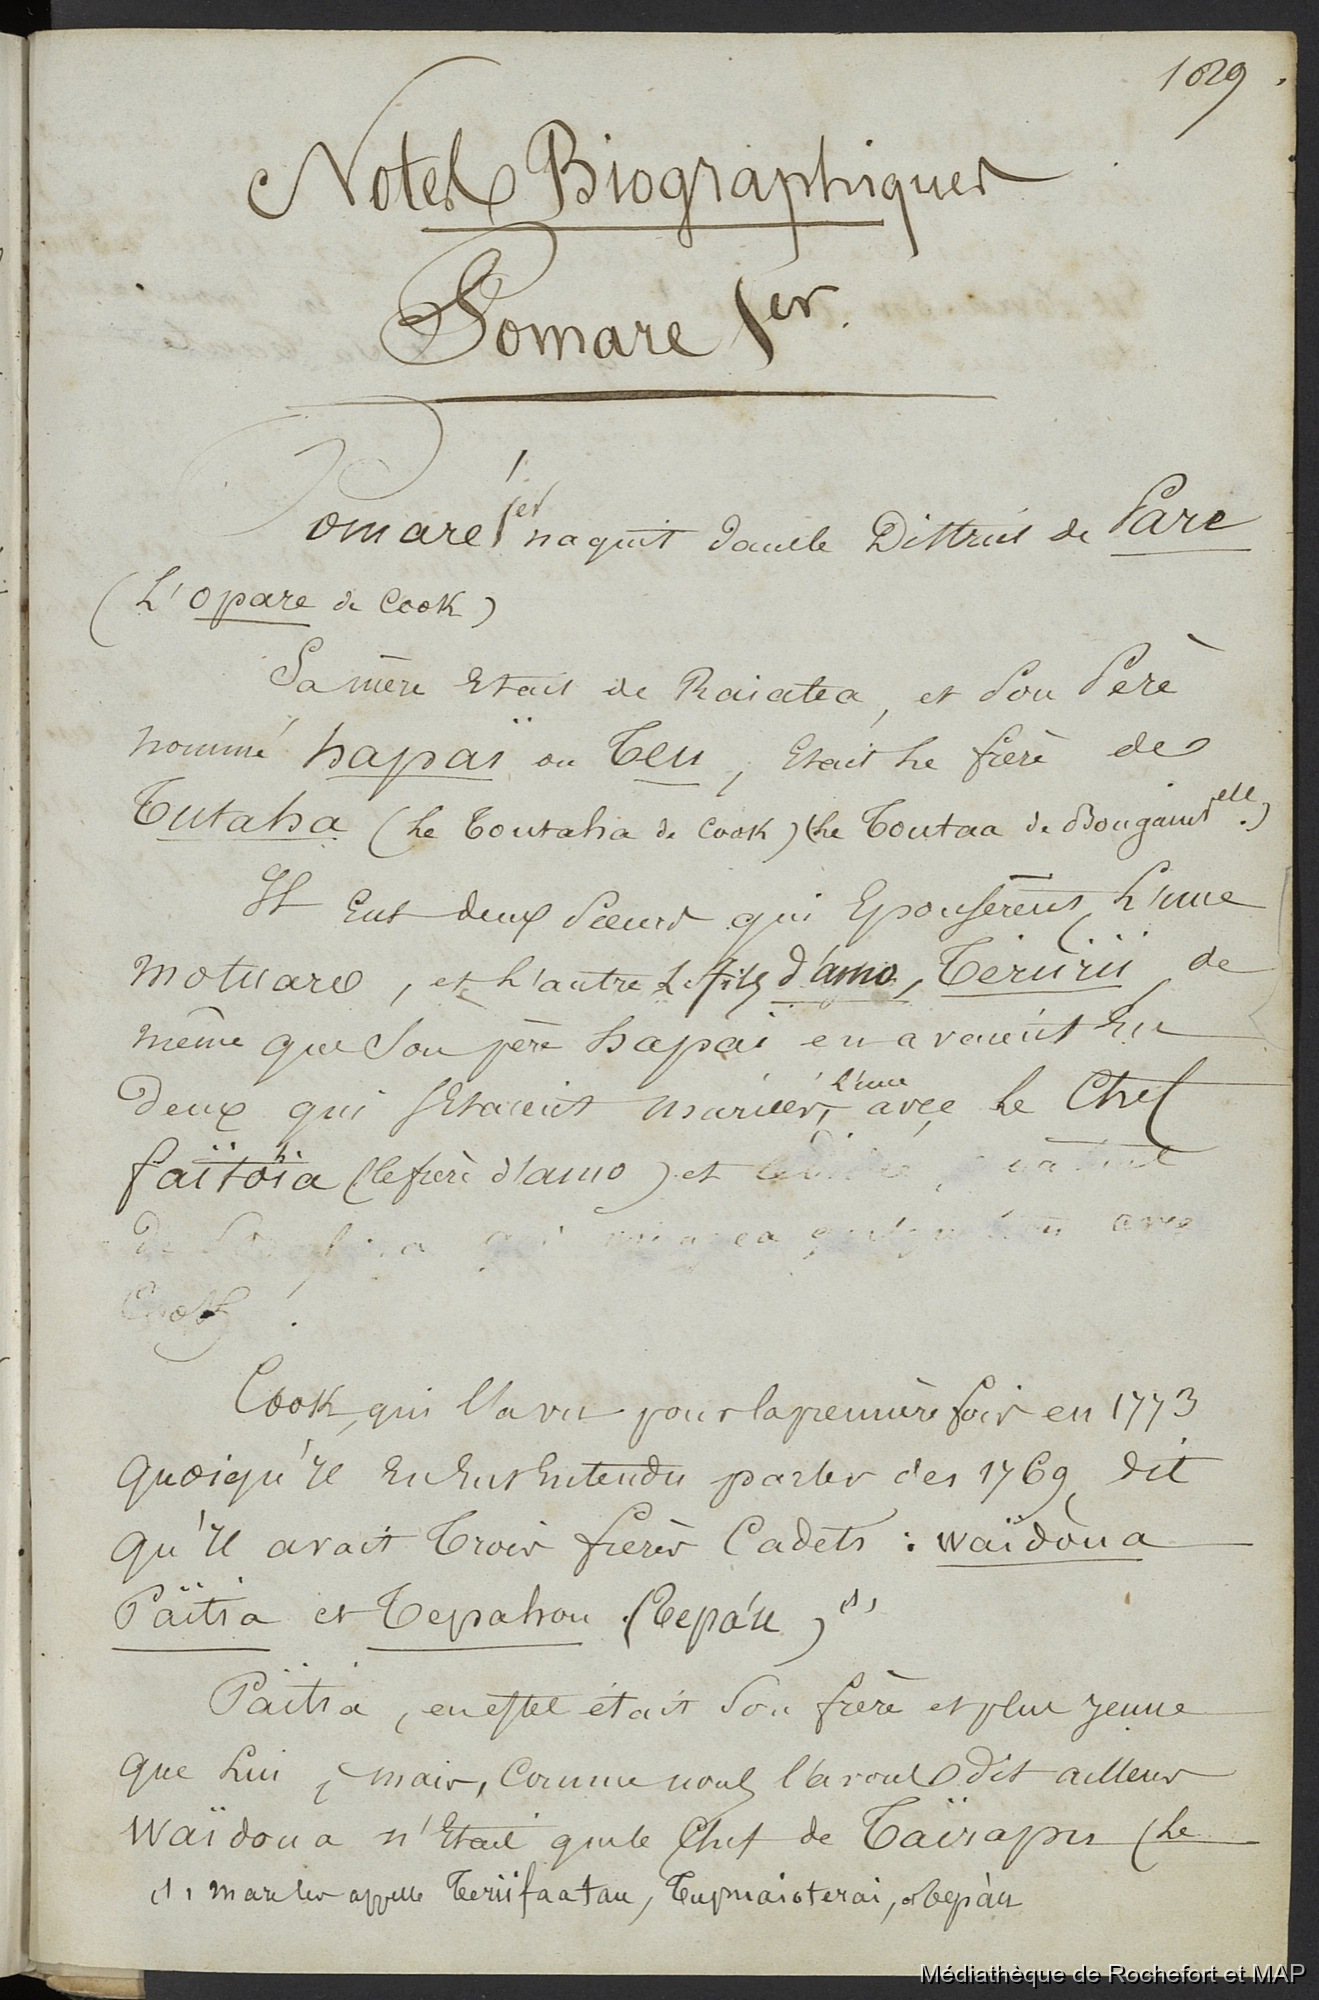 1029.
Notes Biographiques
Pomare 1er.
Pomaré 1er naquit dans le District de Pare
(L'Opare de Cook)
Sa mère était de Raiatea, et son Père
nommé hapaï ou Teu, était le frère de
Tutaha (le Toutaha de Cook) (le Toutaa de Bougainvelle.)
Il eut deux sœurs qui épousèrent, l'une
motuaro, et l'autre le fils d'amo, Teriirii, de
même que son père hapaï en avaient eu
deux qui s'étaient mariées, l'une avec le Chef
faïtohia (le frère d'amo) et
de avec
Cook.
Cook, qui l'a vu pour la première fois en 1773
quoiqu'il en eut entendu parler dès 1769, dit
qu'il avait trois frères Cadets : waïdoua
Païtia et Tepahou (Tepáu) (1)
Païtia, en effet était son frère et plus jeune
que lui, mais, comme nous l'avons dit ailleurs
Waïdoua n'était que le Chef de Taïrapu (le
(1) mare les appelle Teriifaatau, Tupuaioterai, et Tepàu
Médiathèque de Rochefort et MAP